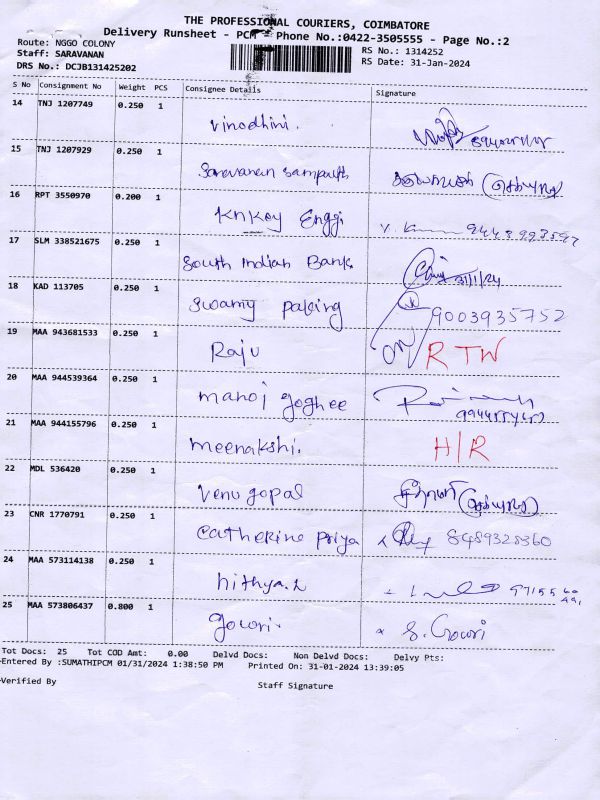 THE PROFESSIONAL COURIERS, COIMBATORE
Delivery Runsheet - PCM - Phone No.:0422-3505555 - Page No.:2
Route: NGGO COLONY
RS No.: 1314252
Staff: SARAVANAN
RS Date: 31-Jan-2024
DRS No.: DCJB131425202
S No Consignment No Weight PCS Consignee Details Signature
14 TNJ 1207749 0.250 1 Vinodhini.
15 TNJ 1207929 0.250 1 Saravanan Sampath
16 RPT 3550970 0.200 1 Knkey Enggi
17 SLM 338521675 0.250 1 South Indian Bank 31/1/24
18 KAD 113705 0.250 1 Swamy paking 9003935752
19 MAA 943681533 0.250 1 Raju RTW
20 MAA 944539364 0.250 1 manoj goghee
21 MAA 944155796 0.250 1 meenakshi. H/R
22 MDL 536420 0.250 1 Venugopal
23 CNR 1770791 0.250 1 Catherine priya 8489328360
24 MAA 573114138 0.250 1 hithya.
25 MAA 573806437 0.800 1 gowri. S. Gowri
Tot Docs: 25 Tot COD Amt: 0.00 Delvd Docs: Non Delvd Docs: Delvy Pts:
Entered By :SUMATHIPCM 01/31/2024 1:38:50 PM Printed On: 31-01-2024 13:39:05
Verified By Staff Signature